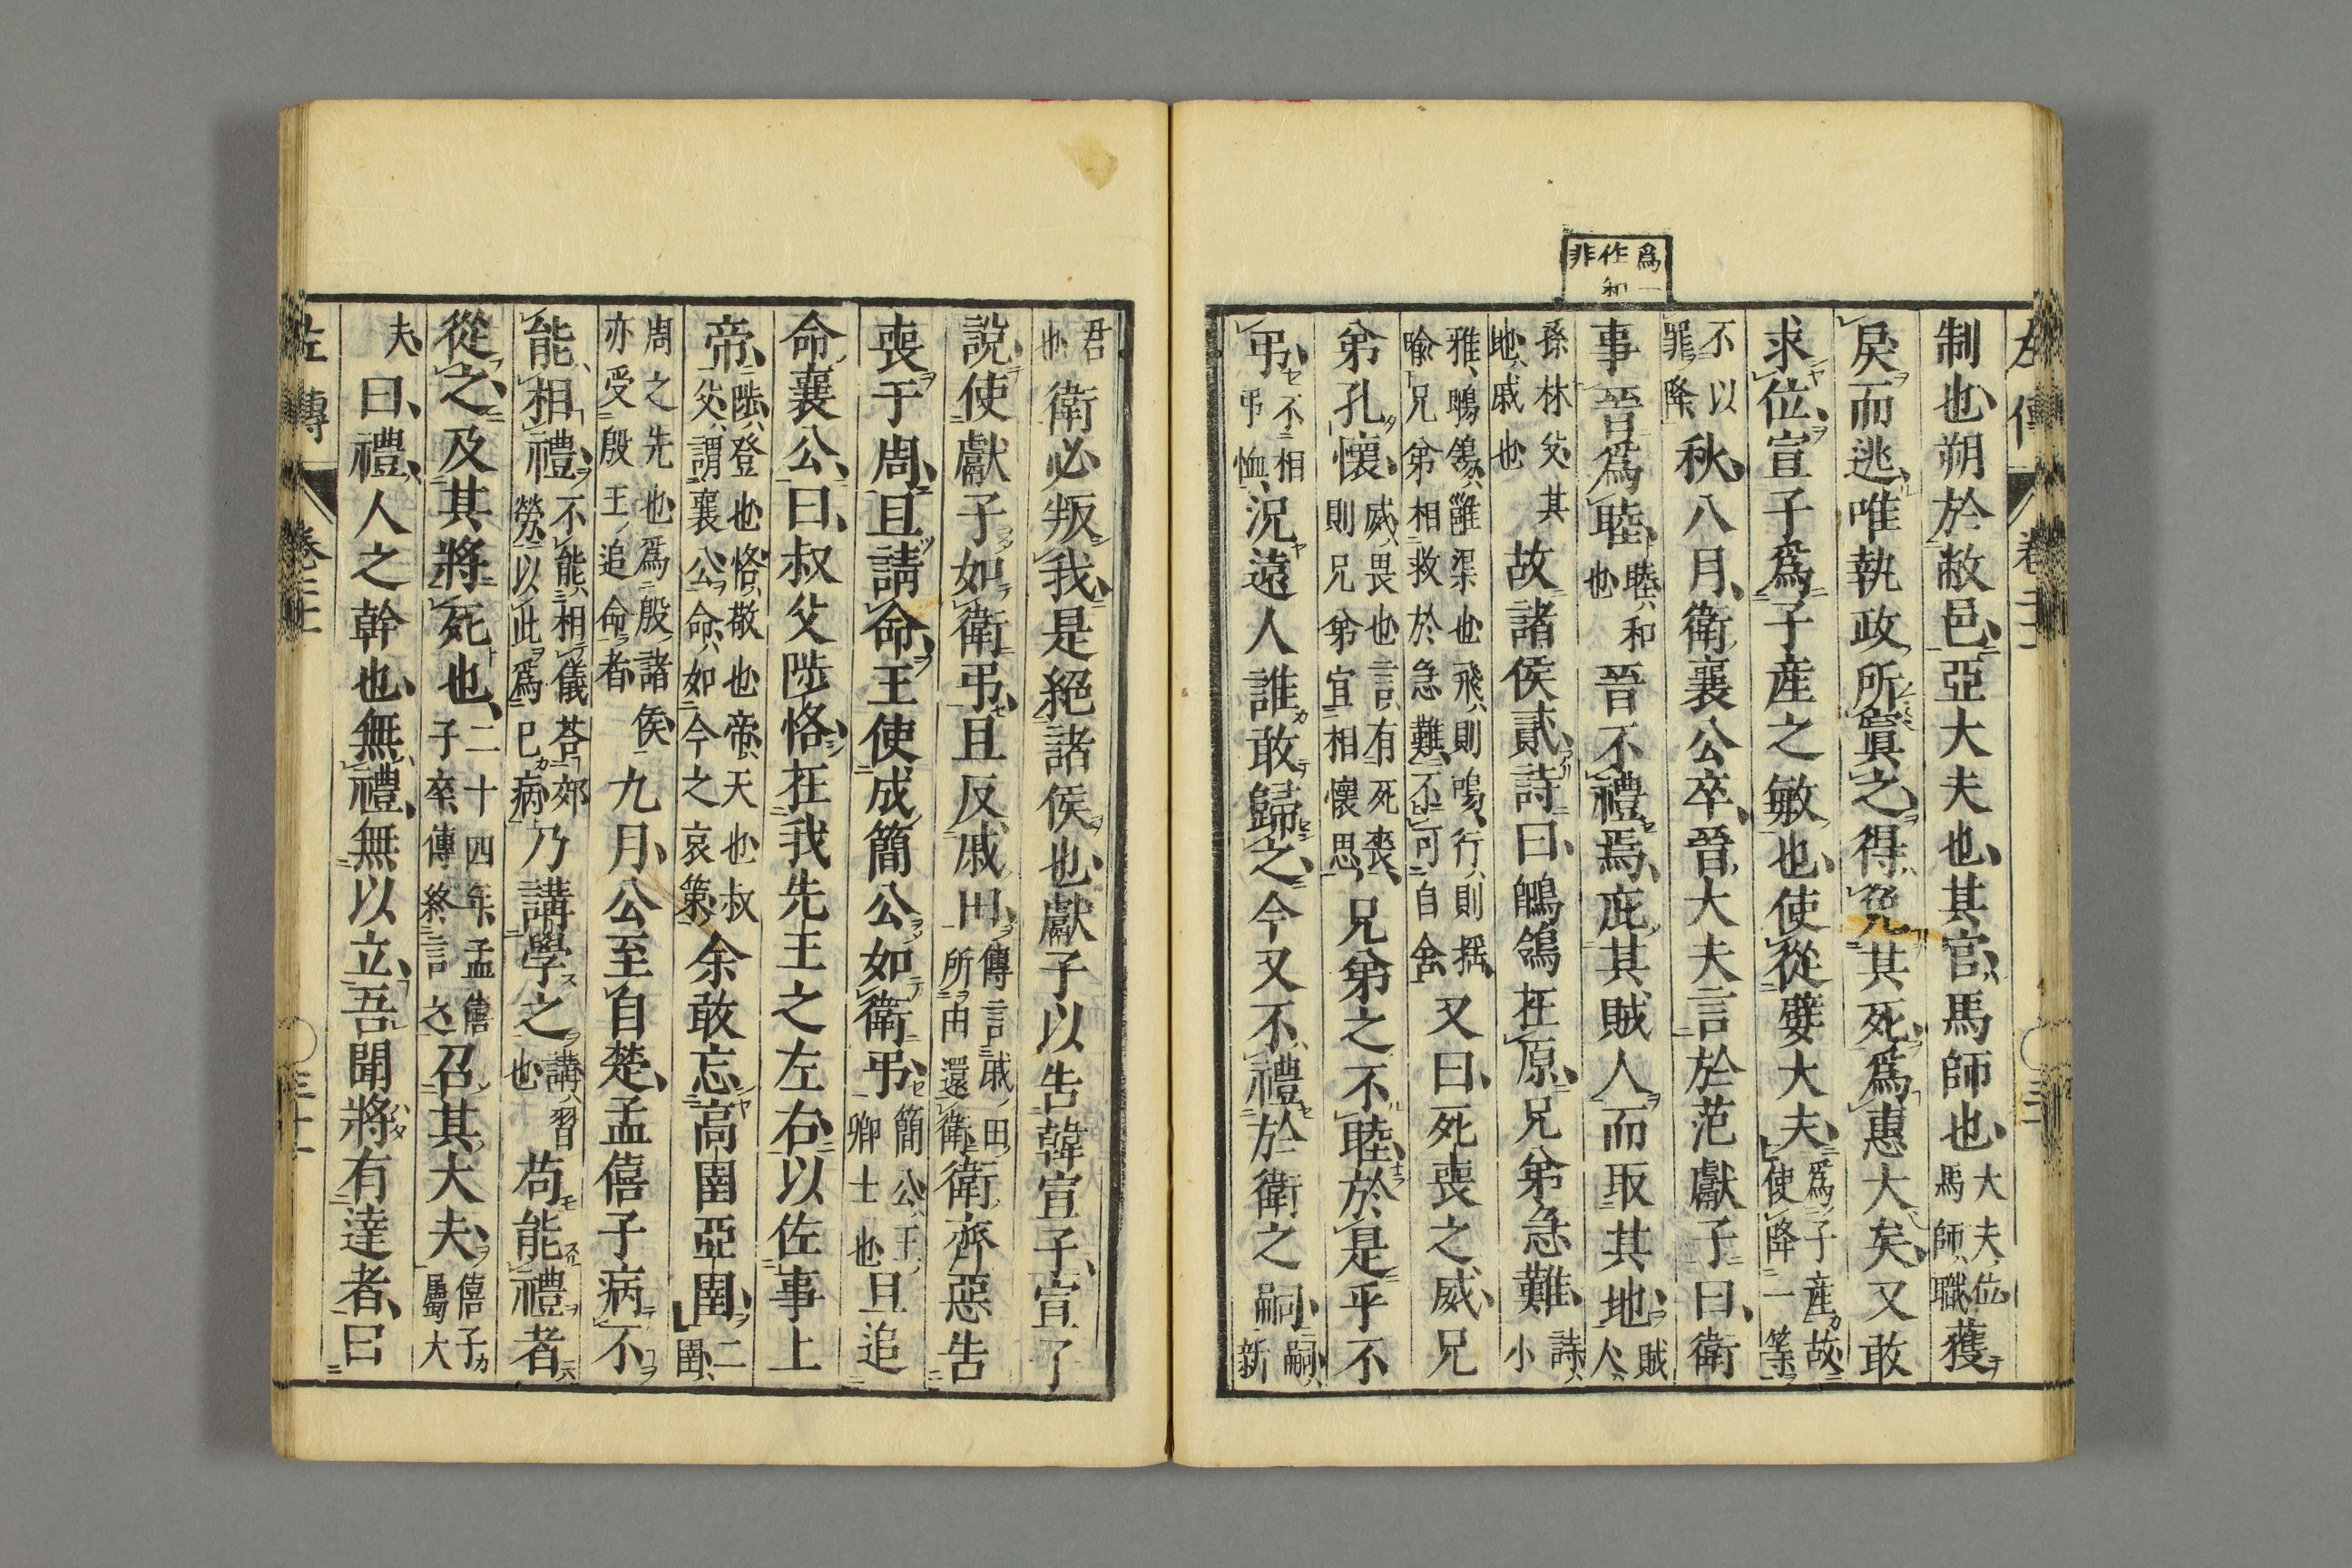 左傳 卷二十二
制也朔於敝邑亞大夫也其官馬師也大夫位馬師職獲
戾而逃唯執政所寘之得免其死爲惠大矣又敢
求位宣子爲子產之敏也使從嬖大夫爲子產故使降一等
不以罪降秋八月衛襄公卒晉大夫言於范獻子曰衛
事晉爲睦睦和也晉不禮焉庇其賊人而取其地賊人
孫林父其地戚也故諸侯貳詩曰鶺鴒在原兄弟急難詩小
雅鶺鴒雝渠也飛則鳴行則搖喻兄弟相救於急難不可自舍又曰死喪之威兄
弟孔懷威畏也言有死喪則兄弟宜相懷思兄弟之不睦於是乎不
弔不相弔恤況遠人誰敢歸之今又不禮於衛之嗣嗣新
爲一作和非
君也衛必叛我是絕諸侯也獻子以告韓宣子宣子
說使獻子如衛弔且反戚田傳言戚田所由還衛衛齊惡告
喪于周且請命王使成簡公如衛弔簡公王卿士也且追
命襄公曰叔父陟恪在我先王之左右以佐事上
帝陟登也恪敬也帝天也叔父謂襄公命如今之哀策余敢忘高圉亞圉二圉
周之先也爲殷諸侯亦受殷王追命者九月公至自楚孟僖子病不
能相禮不能相儀荅郊勞以此爲已病乃講學之講習也苟能禮者
從之及其將死也二十四年孟僖子卒傳終言之召其大夫僖子屬大
夫曰禮人之幹也無禮無以立吾聞將有達者曰
左傳 卷二十二 三十一